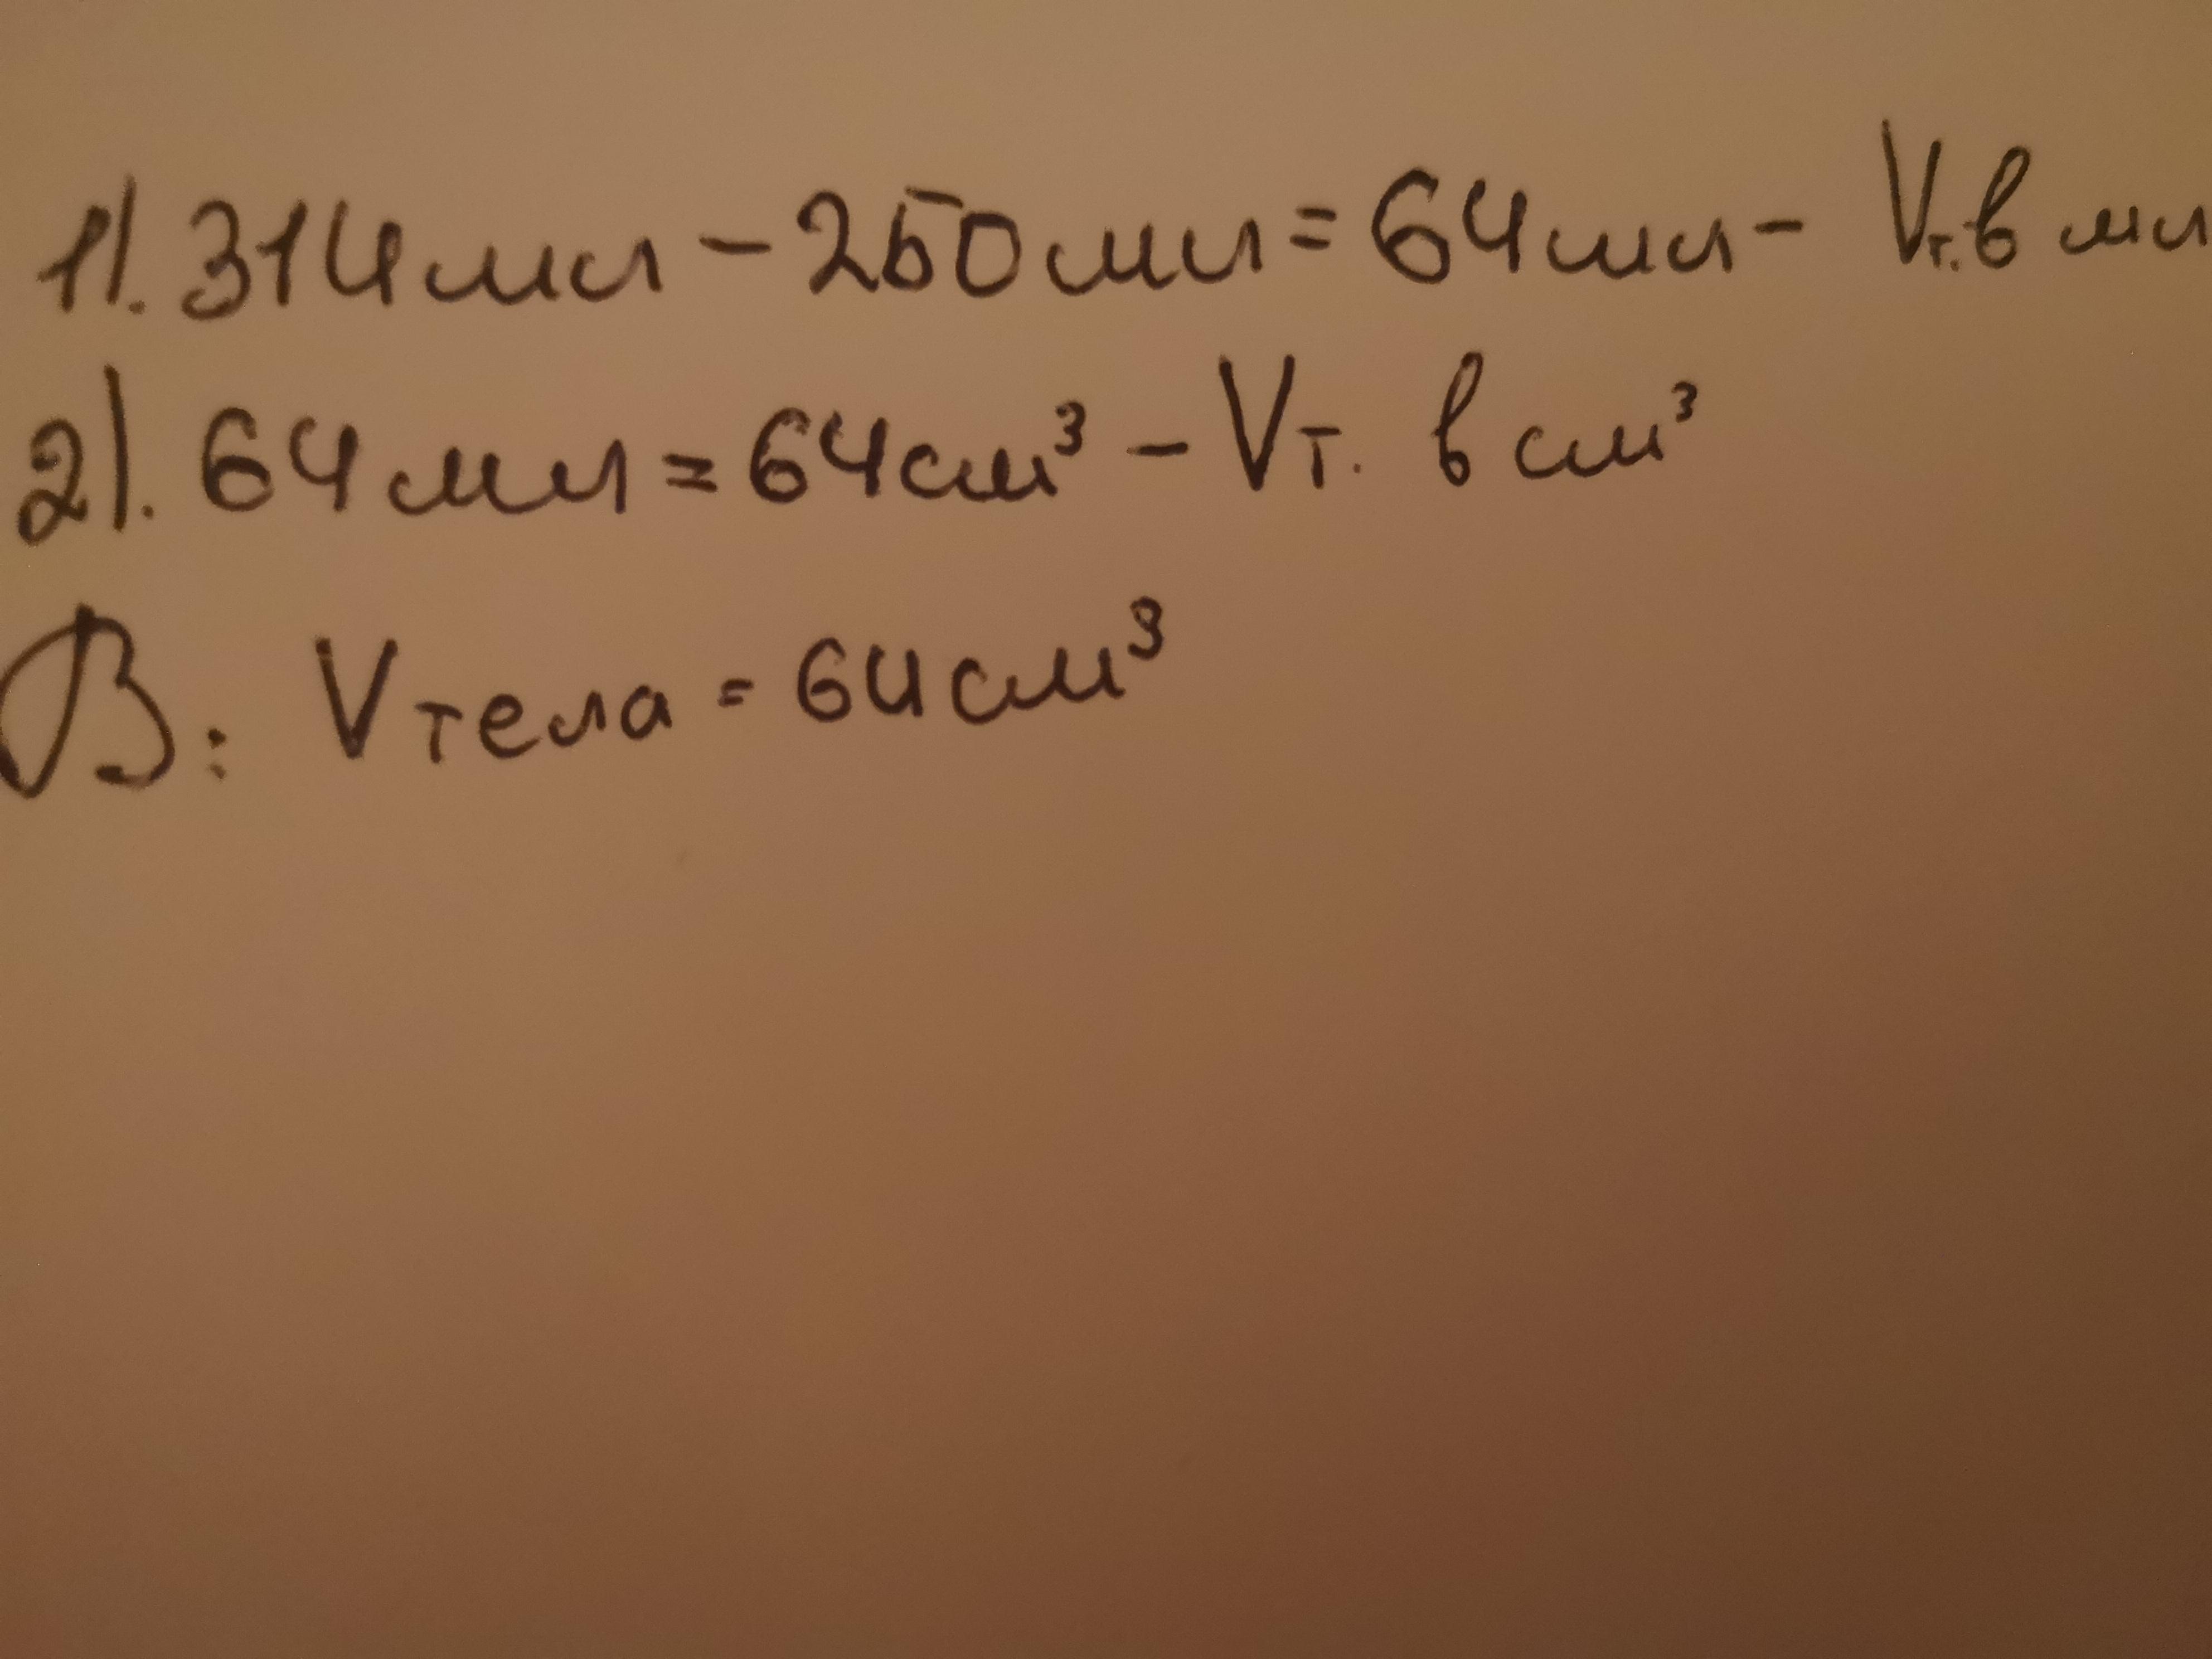 1). 314мл - 250мл = 64мл - Vт. в мл
2). 64мл = 64см³ - Vт. в см³
В: Vтела = 64см³